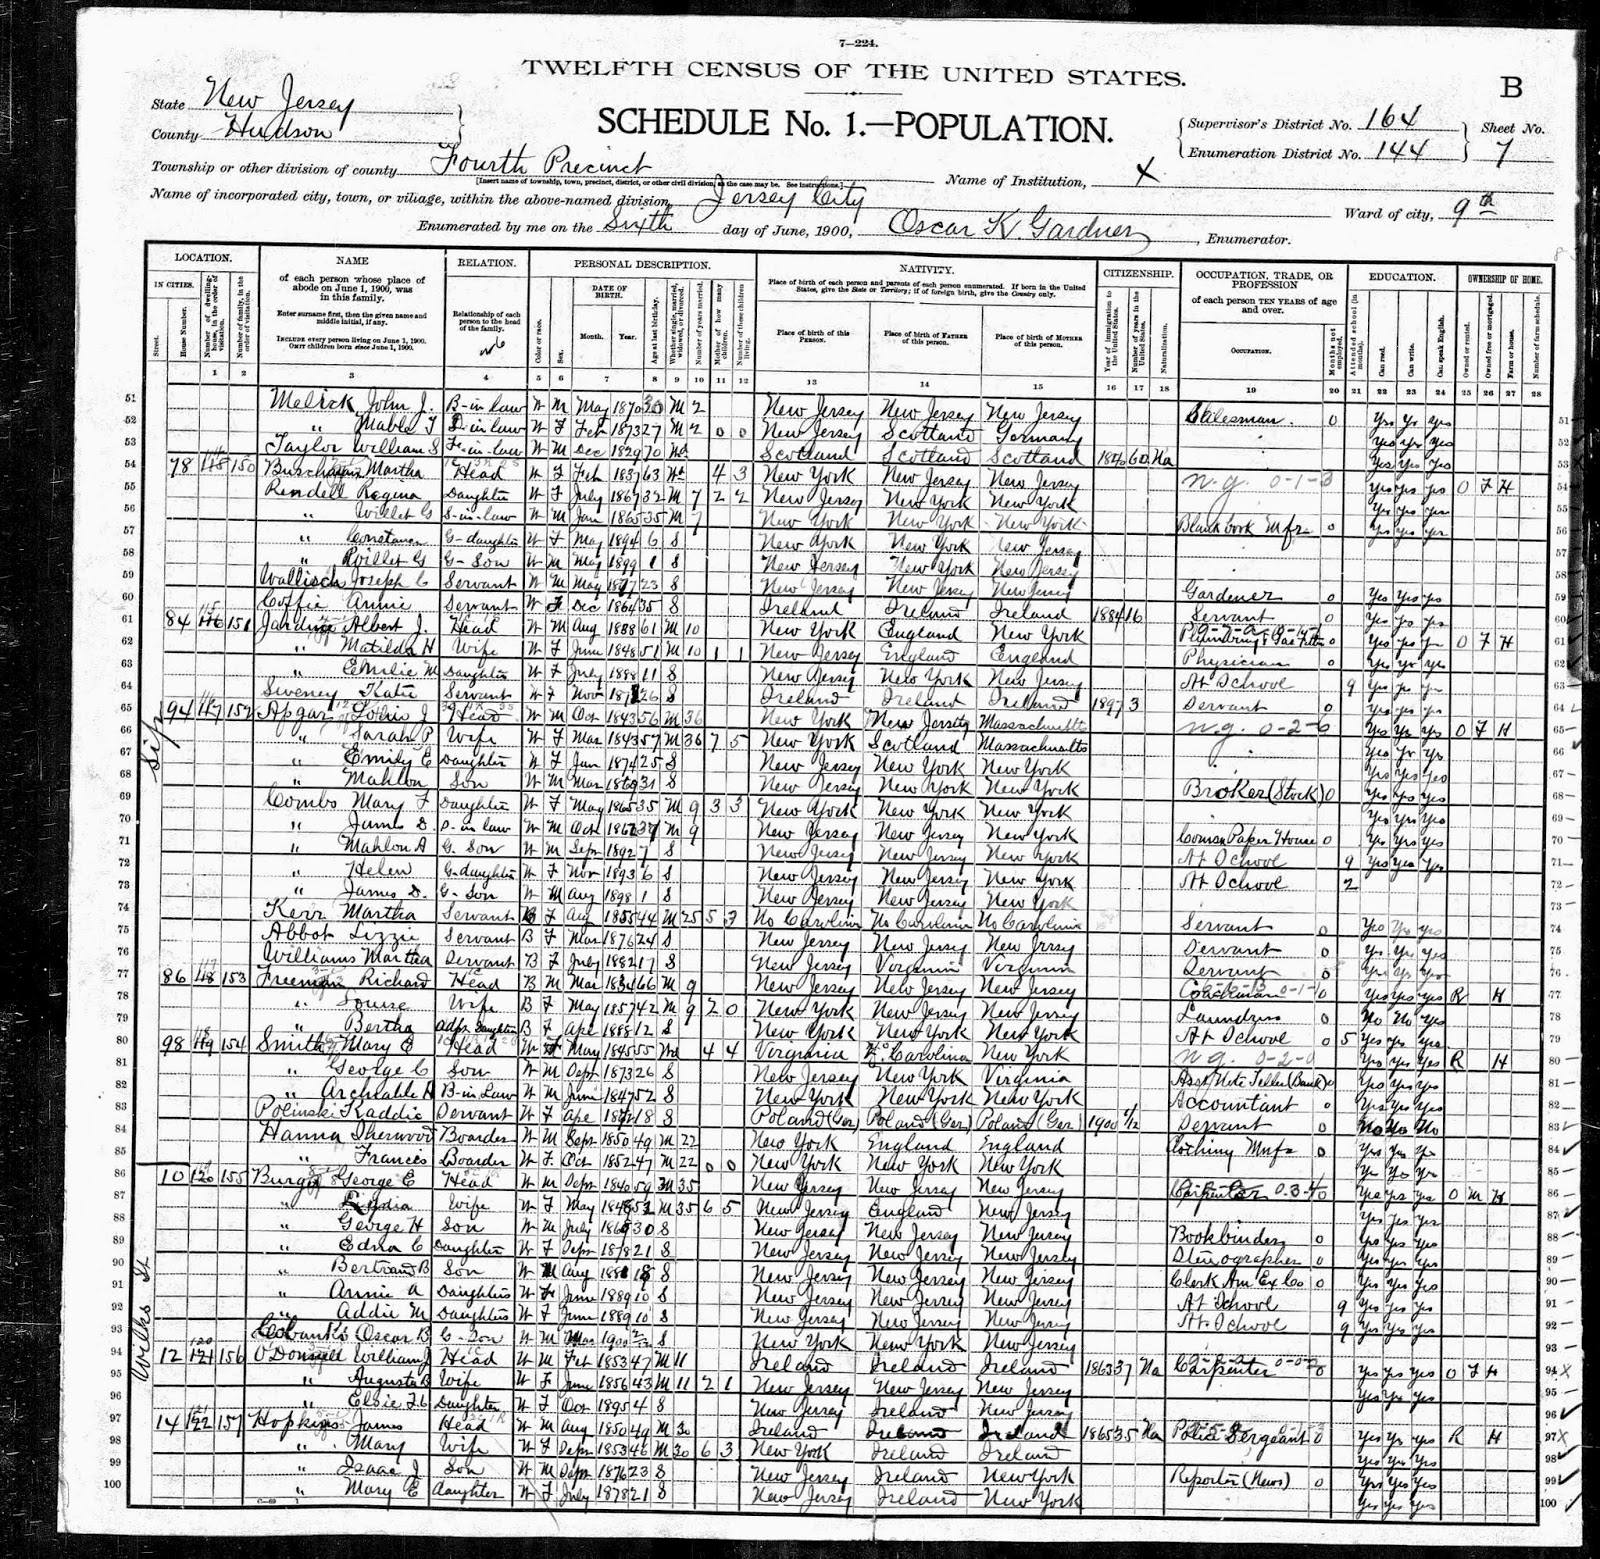 7—224.
TWELFTH CENSUS OF THE UNITED STATES.
B
State New Jersey
County Hudson
SCHEDULE No. 1.—POPULATION.
Supervisor's District No. 164
Enumeration District No. 144
Sheet No.
7
Township or other division of county Fourth Precinct
[Insert name of township, town, precinct, district, or other civil division, as the case may be. See instructions.]
Name of Institution, X
Name of incorporated city, town, or village, within the above-named division, Jersey City
Ward of city, 9th
Enumerated by me on the Sixth day of June, 1900, Oscar K. Gardner, Enumerator.
LOCATION. NAME RELATION. PERSONAL DESCRIPTION. NATIVITY. CITIZENSHIP. OCCUPATION, TRADE, OR PROFESSION EDUCATION. OWNERSHIP OF HOME.
IN CITIES.
Street. House Number. Number of dwelling-house, in the order of visitation. Number of family, in the order of visitation.
of each person whose place of abode on June 1, 1900, was in this family.
Enter surname first, then the given name and middle initial, if any.
INCLUDE every person living on June 1, 1900.
OMIT children born since June 1, 1900.
Relationship of each person to the head of the family.
Color or race. Sex. DATE OF BIRTH. Month. Year. Age at last birthday. Whether single, married, widowed, or divorced. Number of years married. Mother of how many children. Number of these children living.
Place of birth of each person and parents of each person enumerated. If born in the United States, give the State or Territory; if of foreign birth, give the Country only.
Place of birth of this PERSON. Place of birth of FATHER of this person. Place of birth of MOTHER of this person.
Year of immigration to the United States. Number of years in the United States. Naturalization.
of each person TEN YEARS of age and over.
OCCUPATION. Months not employed.
Attended school (in months). Can read. Can write. Can speak English.
Owned or rented. Owned free or mortgaged. Farm or house. Number of farm schedule.
1 2 3 4 5 6 7 8 9 10 11 12 13 14 15 16 17 18 19 20 21 22 23 24 25 26 27 28
51 Melick John J. B-in law W M May 1870 30 M 2 New Jersey New Jersey New Jersey Salesman 0 Yes Yes Yes
52 " Mable T D-in law W F Feb 1873 27 M 2 0 0 New Jersey Scotland Germany Yes Yes Yes
53 Taylor William S F-in law W M Dec 1829 70 Wd Scotland Scotland Scotland 1840 60 Na Yes Yes Yes
54 78 150 Martha Head W F Feb 1837 63 Wd 4 3 New York New Jersey New Jersey Yes Yes Yes O F H
55 Rendell Regina Daughter W F July 1867 32 M 7 2 2 New Jersey New York New York Yes Yes Yes
56 " Willet G S-in-law W M Jan 1865 35 M 7 New York New York New York Blank book Mfr 0 Yes Yes Yes
57 " Constance G-daughter W F May 1894 6 S New York New York New Jersey
58 " Willet G G-Son W M May 1899 1 S New Jersey New York New Jersey
59 Wallisch Joseph C Servant W M May 1877 23 S New Jersey New Jersey New Jersey Gardener 0 Yes Yes Yes
60 Coffie Annie Servant W F Dec 1864 35 S Ireland Ireland Ireland 1884 16 Servant 0 Yes Yes Yes
61 84 151 Jardine Albert J. Head W M Aug 61 M 10 New York England New York Plumbing & Gas Fitter 0 Yes Yes Yes O F H
62 " Matilda H Wife W F June 1848 51 M 10 1 1 New Jersey England England Physician 0 Yes Yes Yes
63 " Emilie M Daughter W F July 1888 11 S New Jersey New York New Jersey At School 9 Yes Yes Yes
64 Sweney Katie Servant W F Nov 26 S Ireland Ireland Ireland 1897 3 Servant 0 Yes Yes Yes
65 94 152 Apgar Head W M Oct 1843 56 M 36 New York New Jersey Massachusetts Yes Yes Yes O F H
66 " Sarah P Wife W F Mar 1843 57 M 36 7 5 New York Scotland Massachusetts Yes Yes Yes
67 " Emily E Daughter W F Jan 1874 25 S New Jersey New York New York Yes Yes Yes
68 " Mahlon Son W M Mar 1869 31 S New Jersey New York New York Broker (Stock) 0 Yes Yes Yes
69 Combs Mary F Daughter W F May 1865 35 M 9 3 3 New York New York New York Yes Yes Yes
70 " James D. S-in law W M Oct M 9 New Jersey New Jersey New York Comsn Paper House 0 Yes Yes Yes
71 " Mahlon A G. Son W M Sept 1892 7 S New Jersey New Jersey New York At School 9 Yes Yes Yes
72 " Helen G-daughter W F Nov 1893 6 S New Jersey New Jersey New York At School 2
73 " James D. G-Son W M Aug 1898 1 S New Jersey New Jersey New York
74 Kerr Martha Servant B F Aug 1855 44 M 25 5 3 No Carolina No Carolina No Carolina Servant 0 Yes Yes Yes
75 Abbot Lizzie Servant B F Mar 1876 24 S New Jersey New Jersey New Jersey Servant 0 Yes Yes Yes
76 Williams Martha Servant B F July 1882 17 S New Jersey Virginia Virginia Servant 0 Yes Yes Yes
77 86 153 Freeman Richard Head B M Mar 1834 66 M 9 New Jersey New Jersey New Jersey Coachman 0 Yes Yes Yes R H
78 " Louise Wife B F May 1857 42 M 9 2 0 New York New Jersey New Jersey Laundress 0 No No Yes
79 " Bertha Adp. Daughter B F Apr 1888 12 S New York New York New York At School 5 Yes Yes Yes
80 98 154 Smith Mary E Head W F May 1845 55 Wd 4 4 Virginia N. Carolina New York Yes Yes Yes R H
81 " George C Son W M Sept 1873 26 S New Jersey New York Virginia Asst Note Teller (Bank) 0 Yes Yes Yes
82 " Archibald H B-in Law W M June 1847 52 S New York New York New York Accountant 0 Yes Yes Yes
83 Polinski Kaddie Servant W F Apr 1882 18 S Poland (Ger) Poland (Ger) Poland (Ger) 1900 1/12 Servant 0 No No No
84 Hanna Sherwood Boarder W M Sept 1850 49 M 22 New York England England Clothing Mnfr 0 Yes Yes Yes
85 " Francis Boarder W F. Oct 1852 47 M 22 0 0 New York New York New York Yes Yes Yes
86 10 155 George E Head W M Sept 1840 59 M 35 New Jersey New Jersey New Jersey Carpenter 0 Yes Yes Yes O M H
87 " Lydia Wife W F May 1848 52 M 35 6 5 New Jersey England New Jersey Yes Yes Yes
88 " George H Son W M July 1869 30 S New Jersey New Jersey New Jersey Bookbinder 0 Yes Yes Yes
89 " Edna C Daughter W F Sept 1878 21 S New Jersey New Jersey New Jersey Stenographer 0 Yes Yes Yes
90 " Bertrand B Son W M Aug 18 S New Jersey New Jersey New Jersey Clerk Am Ex Co 0 Yes Yes Yes
91 " Annie A Daughter W F June 1889 10 S New Jersey New Jersey New Jersey At School 9 Yes Yes Yes
92 " Addie M Daughter W F June 1889 10 S New Jersey New Jersey New Jersey At School 9 Yes Yes Yes
93 Oscar B G-Son W M Mar 1900 2/12 S New York New York New Jersey
94 12 156 O'Donnell William J Head W M Feb 1853 47 M 11 Ireland Ireland Ireland 1863 37 Na Carpenter 0 Yes Yes Yes O F H
95 " Augusta B Wife W F June 1856 43 M 11 2 1 New Jersey New Jersey New Jersey Yes Yes Yes
96 " Elsie F. L Daughter W F Oct 1895 4 S New Jersey Ireland New Jersey
97 14 157 Hopkins James Head W M Aug 1850 49 M 30 Ireland Ireland Ireland 1865 35 Na Police Sergeant 0 Yes Yes Yes R H
98 " Mary Wife W F Sept 1853 46 M 30 6 3 New York Ireland Ireland Yes Yes Yes
99 " Isaac J Son W M Sept 1876 23 S New Jersey Ireland New York Reporter (News) 0 Yes Yes Yes
100 " Mary E daughter W F July 1878 21 S New Jersey Ireland New York Yes Yes Yes
Wilks St